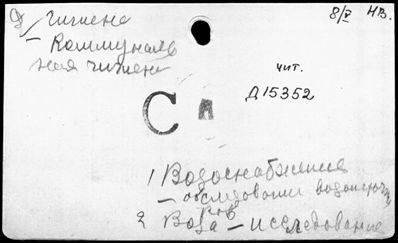 Гигиена
8/V НВ.
– Коммуналь
ная гигиена
чит.
Д15352
С
1 Водоснабжение
– обследования водопро
2 Вода – исследование